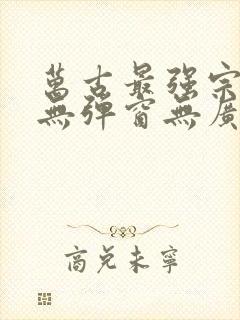 萬古最强宗
無彈窗無廣
商兌未寧